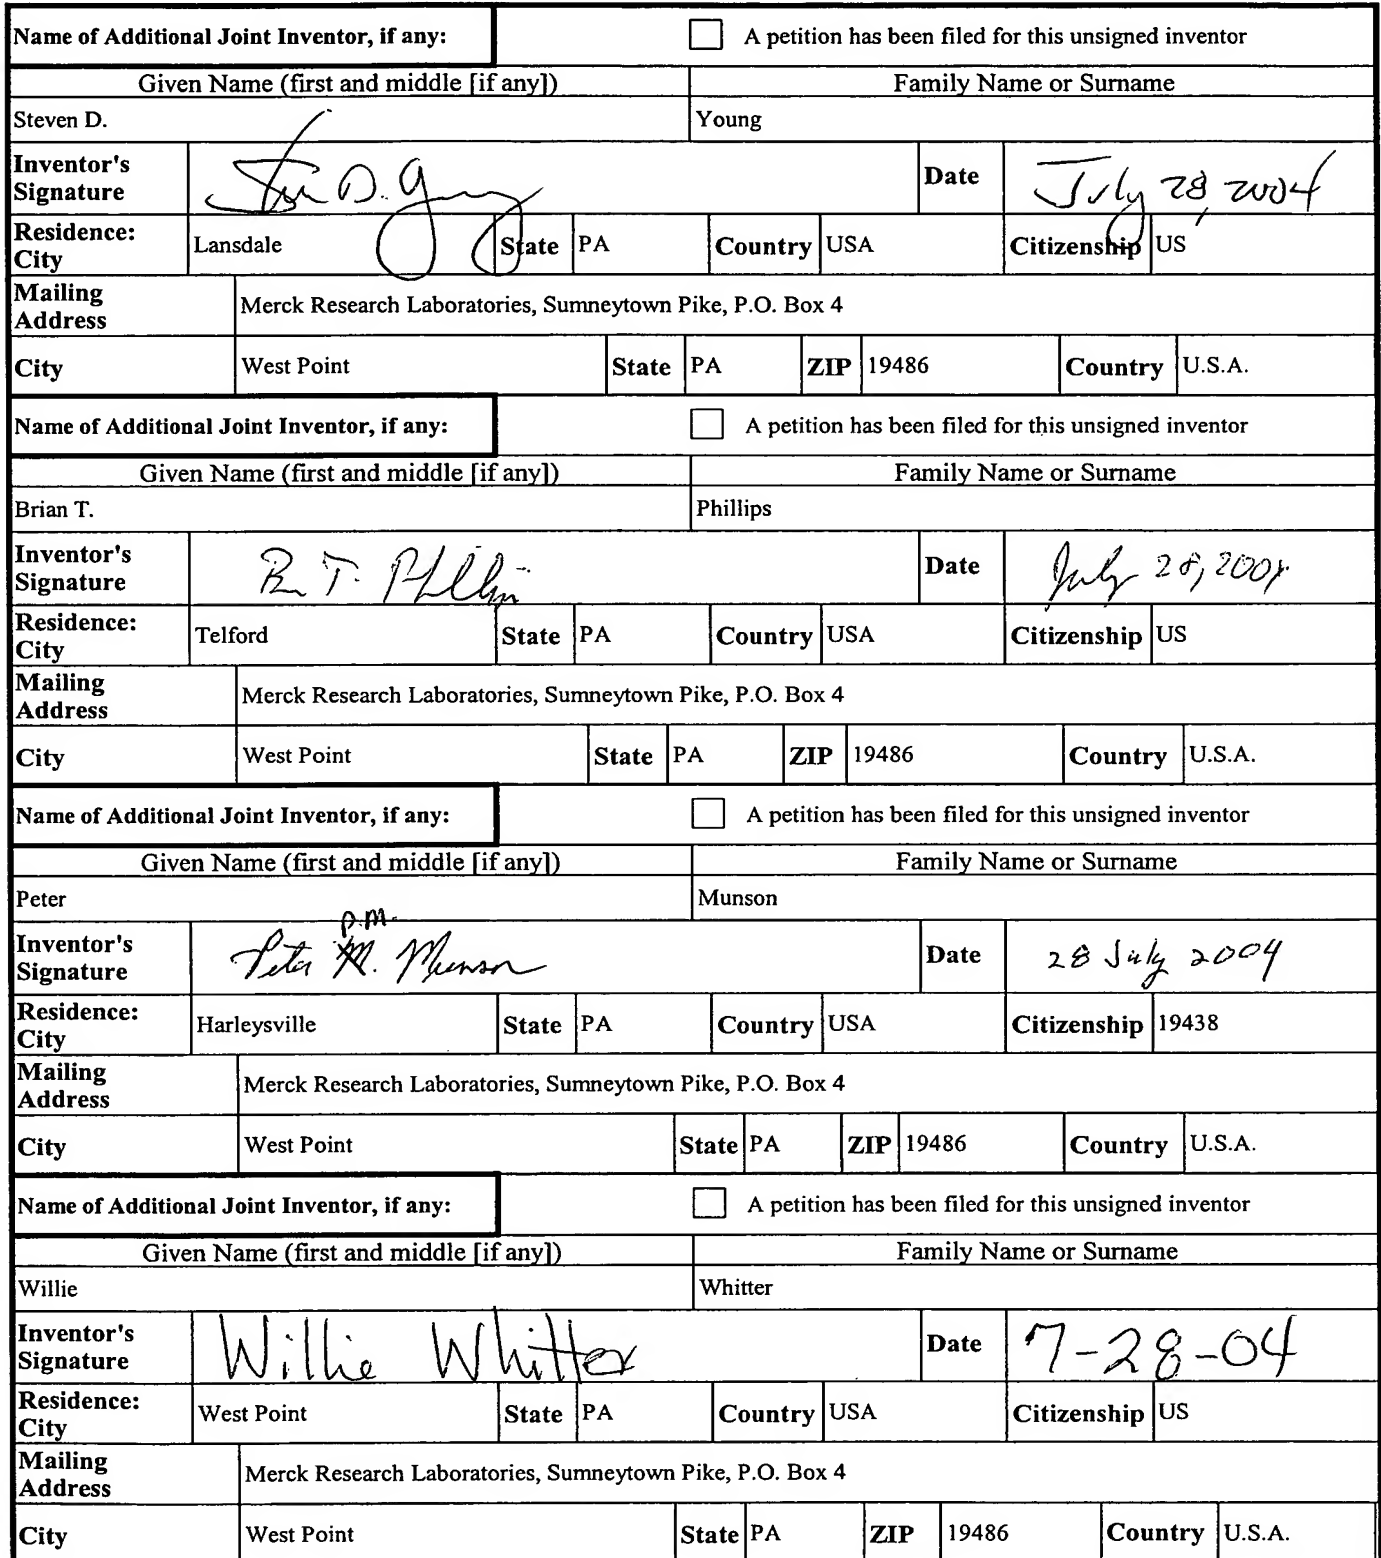 Name of Additional Joint Inventor, if any: A petition has been filed for this unsigned inventor
Given Name (first and middle [if any]) Family Name or Surname
Steven D. Young
Inventor's Signature D. Date July 28, 2004
Residence: City Lansdale State PA Country USA Citizenship US
Mailing Address Merck Research Laboratories, Sumneytown Pike, P.O. Box 4
City West Point State PA ZIP 19486 Country U.S.A.
Name of Additional Joint Inventor, if any: A petition has been filed for this unsigned inventor
Given Name (first and middle [if any]) Family Name or Surname
Brian T. Phillips
Inventor's Signature T. Date July 28, 2004
Residence: City Telford State PA Country USA Citizenship US
Mailing Address Merck Research Laboratories, Sumneytown Pike, P.O. Box 4
City West Point State PA ZIP 19486 Country U.S.A.
Name of Additional Joint Inventor, if any: A petition has been filed for this unsigned inventor
Given Name (first and middle [if any]) Family Name or Surname
Peter Munson
p.m.
Inventor's Signature Peter M. Munson Date 28 July 2004
Residence: City Harleysville State PA Country USA Citizenship 19438
Mailing Address Merck Research Laboratories, Sumneytown Pike, P.O. Box 4
City West Point State PA ZIP 19486 Country U.S.A.
Name of Additional Joint Inventor, if any: A petition has been filed for this unsigned inventor
Given Name (first and middle [if any]) Family Name or Surname
Willie Whitter
Inventor's Signature Willie Whitter Date 7-28-04
Residence: City West Point State PA Country USA Citizenship US
Mailing Address Merck Research Laboratories, Sumneytown Pike, P.O. Box 4
City West Point State PA ZIP 19486 Country U.S.A.